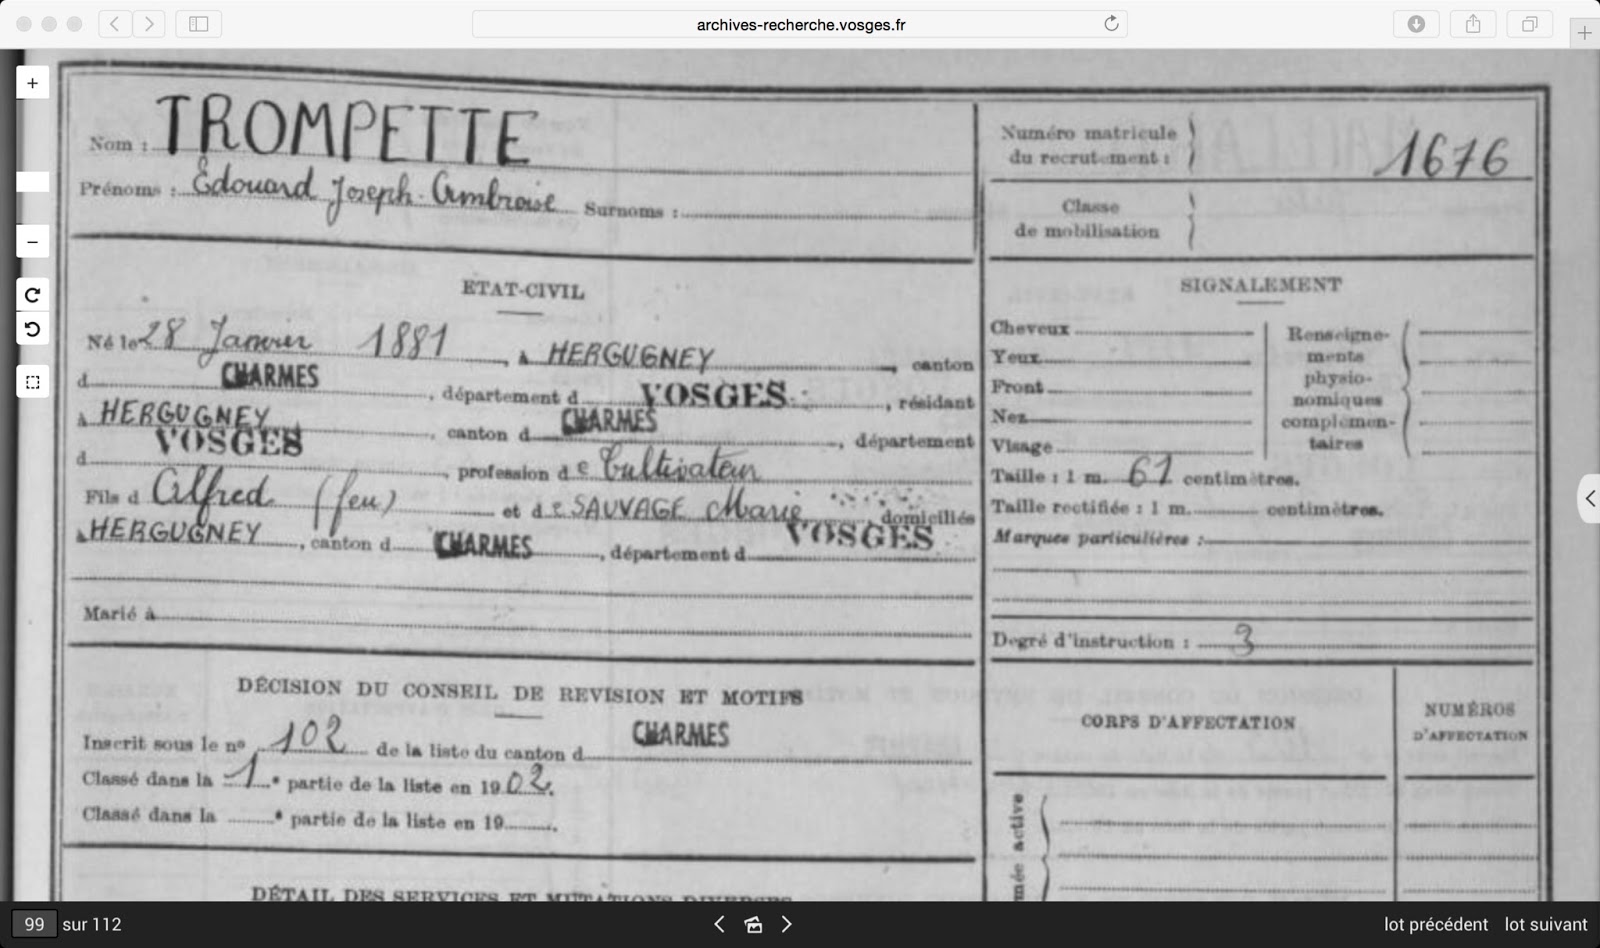 archives-recherche.vosges.fr
Nom : TROMPETTE
Prénoms : Edouard Joseph-Ambroise Surnoms :
Numéro matricule
du recrutement : 1676
Classe
de mobilisation
ETAT-CIVIL
Né le 28 Janvier 1881, à HERGUGNEY, canton
d CHARMES, département d VOSGES, résidant
à HERGUGNEY, canton d CHARMES, département
d VOSGES, profession de Cultivateur
Fils d Alfred (feu) et de SAUVAGE Marie domiciliés
à HERGUGNEY, canton d CHARMES, département d VOSGES
Marié à
SIGNALEMENT
Cheveux
Yeux
Front
Nez
Visage
Renseigne-
ments
physio-
nomiques
complémen-
taires
Taille : 1 m. 61 centimètres.
Taille rectifiée : 1 m. centimètres.
Marques particulières :
Degré d'instruction : 3
DÉCISION DU CONSEIL DE REVISION ET MOTIFS
Inscrit sous le no 102 de la liste du canton d CHARMES
Classé dans la 1e partie de la liste en 1902.
Classé dans la e partie de la liste en 19 .
CORPS D'AFFECTATION
NUMÉROS
D'AFFECTATION
DÉTAIL DES SERVICES ET MUTATIONS DIVERSES
99 sur 112
lot précédent lot suivant